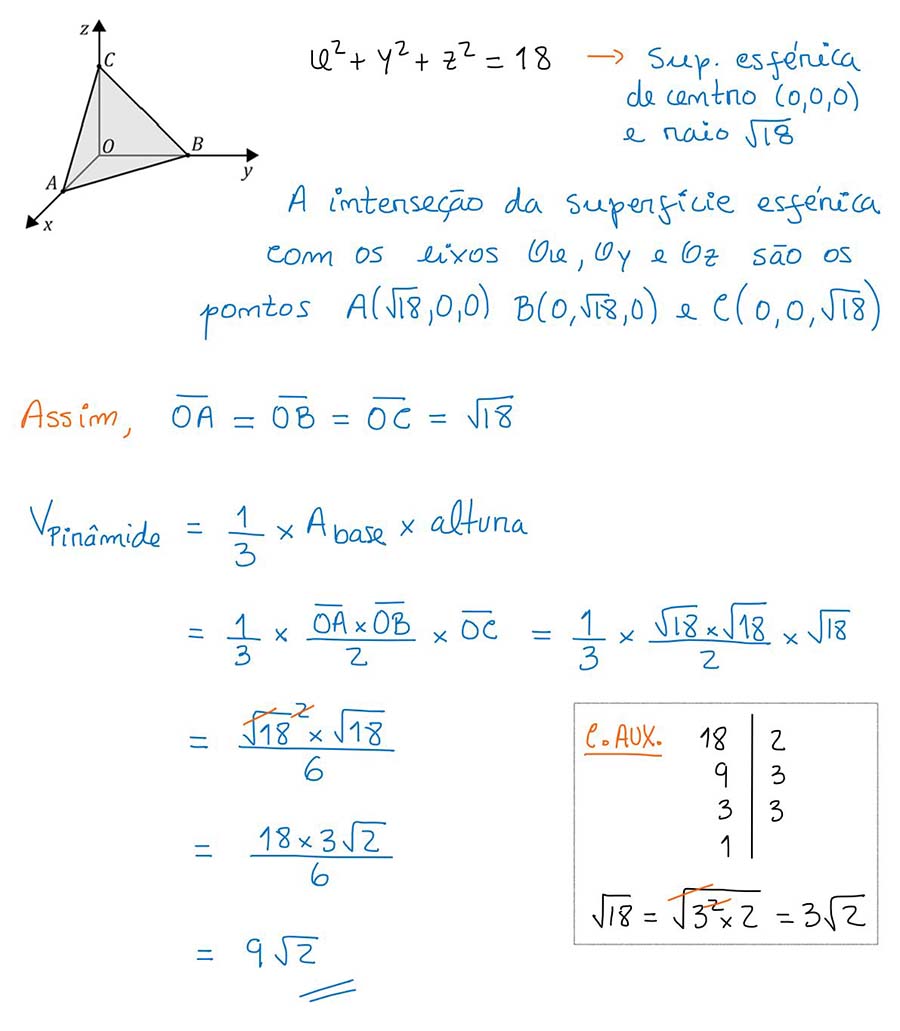 z
C
O
B
y
A
x
x² + y² + z² = 18 → Sup. esférica
de centro (0,0,0)
e raio √18
A interseção da superfície esférica
com os eixos Ox, Oy e Oz são os
pontos A(√18,0,0) B(0,√18,0) e C(0,0,√18)
Assim, O̅A̅ = O̅B̅ = O̅C̅ = √18
V_Pirâmide = 1/3 × A_base × altura
= 1/3 × (O̅A̅ × O̅B̅)/2 × O̅C̅ = 1/3 × (√18 × √18)/2 × √18
= (√18² × √18)/6
= (18 × 3√2)/6
= 9√2
C. AUX.
18 | 2
9 | 3
3 | 3
1 |
√18 = √(3² × 2) = 3√2